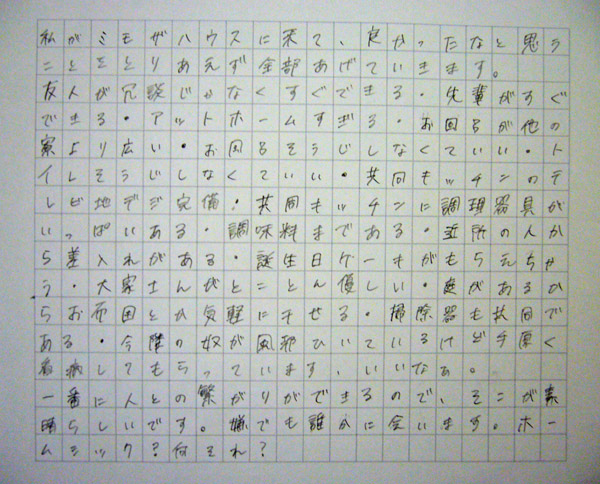 私がミモザハウスに来て、良かったなと思う
ことをとりあえず全部あげていきます。
友人が冗談じゃなくすぐできる・先輩がすぐ
できる・アットホームすぎる・お風呂が他の
寮より広い・お風呂そうじしなくていい・ト
イレそうじしなくていい・共同キッチンのテ
レビ地デジ完備!共同キッチンに調理器具が
いっぱいある・調味料まである・近所の人か
ら差入れがある・誕生日ケーキがもらえちゃ
う・大家さんがとことん優しい・庭があるか
らお布団とか気軽に干せる・掃除器も共同で
ある・今隣の奴が風邪ひいているけど手厚く
看病してもらっています、いいなぁ。
一番に人との繋がりができるので、そこが素
晴らしいです。嫌でも誰かに会います。ホー
ムシック?何それ?